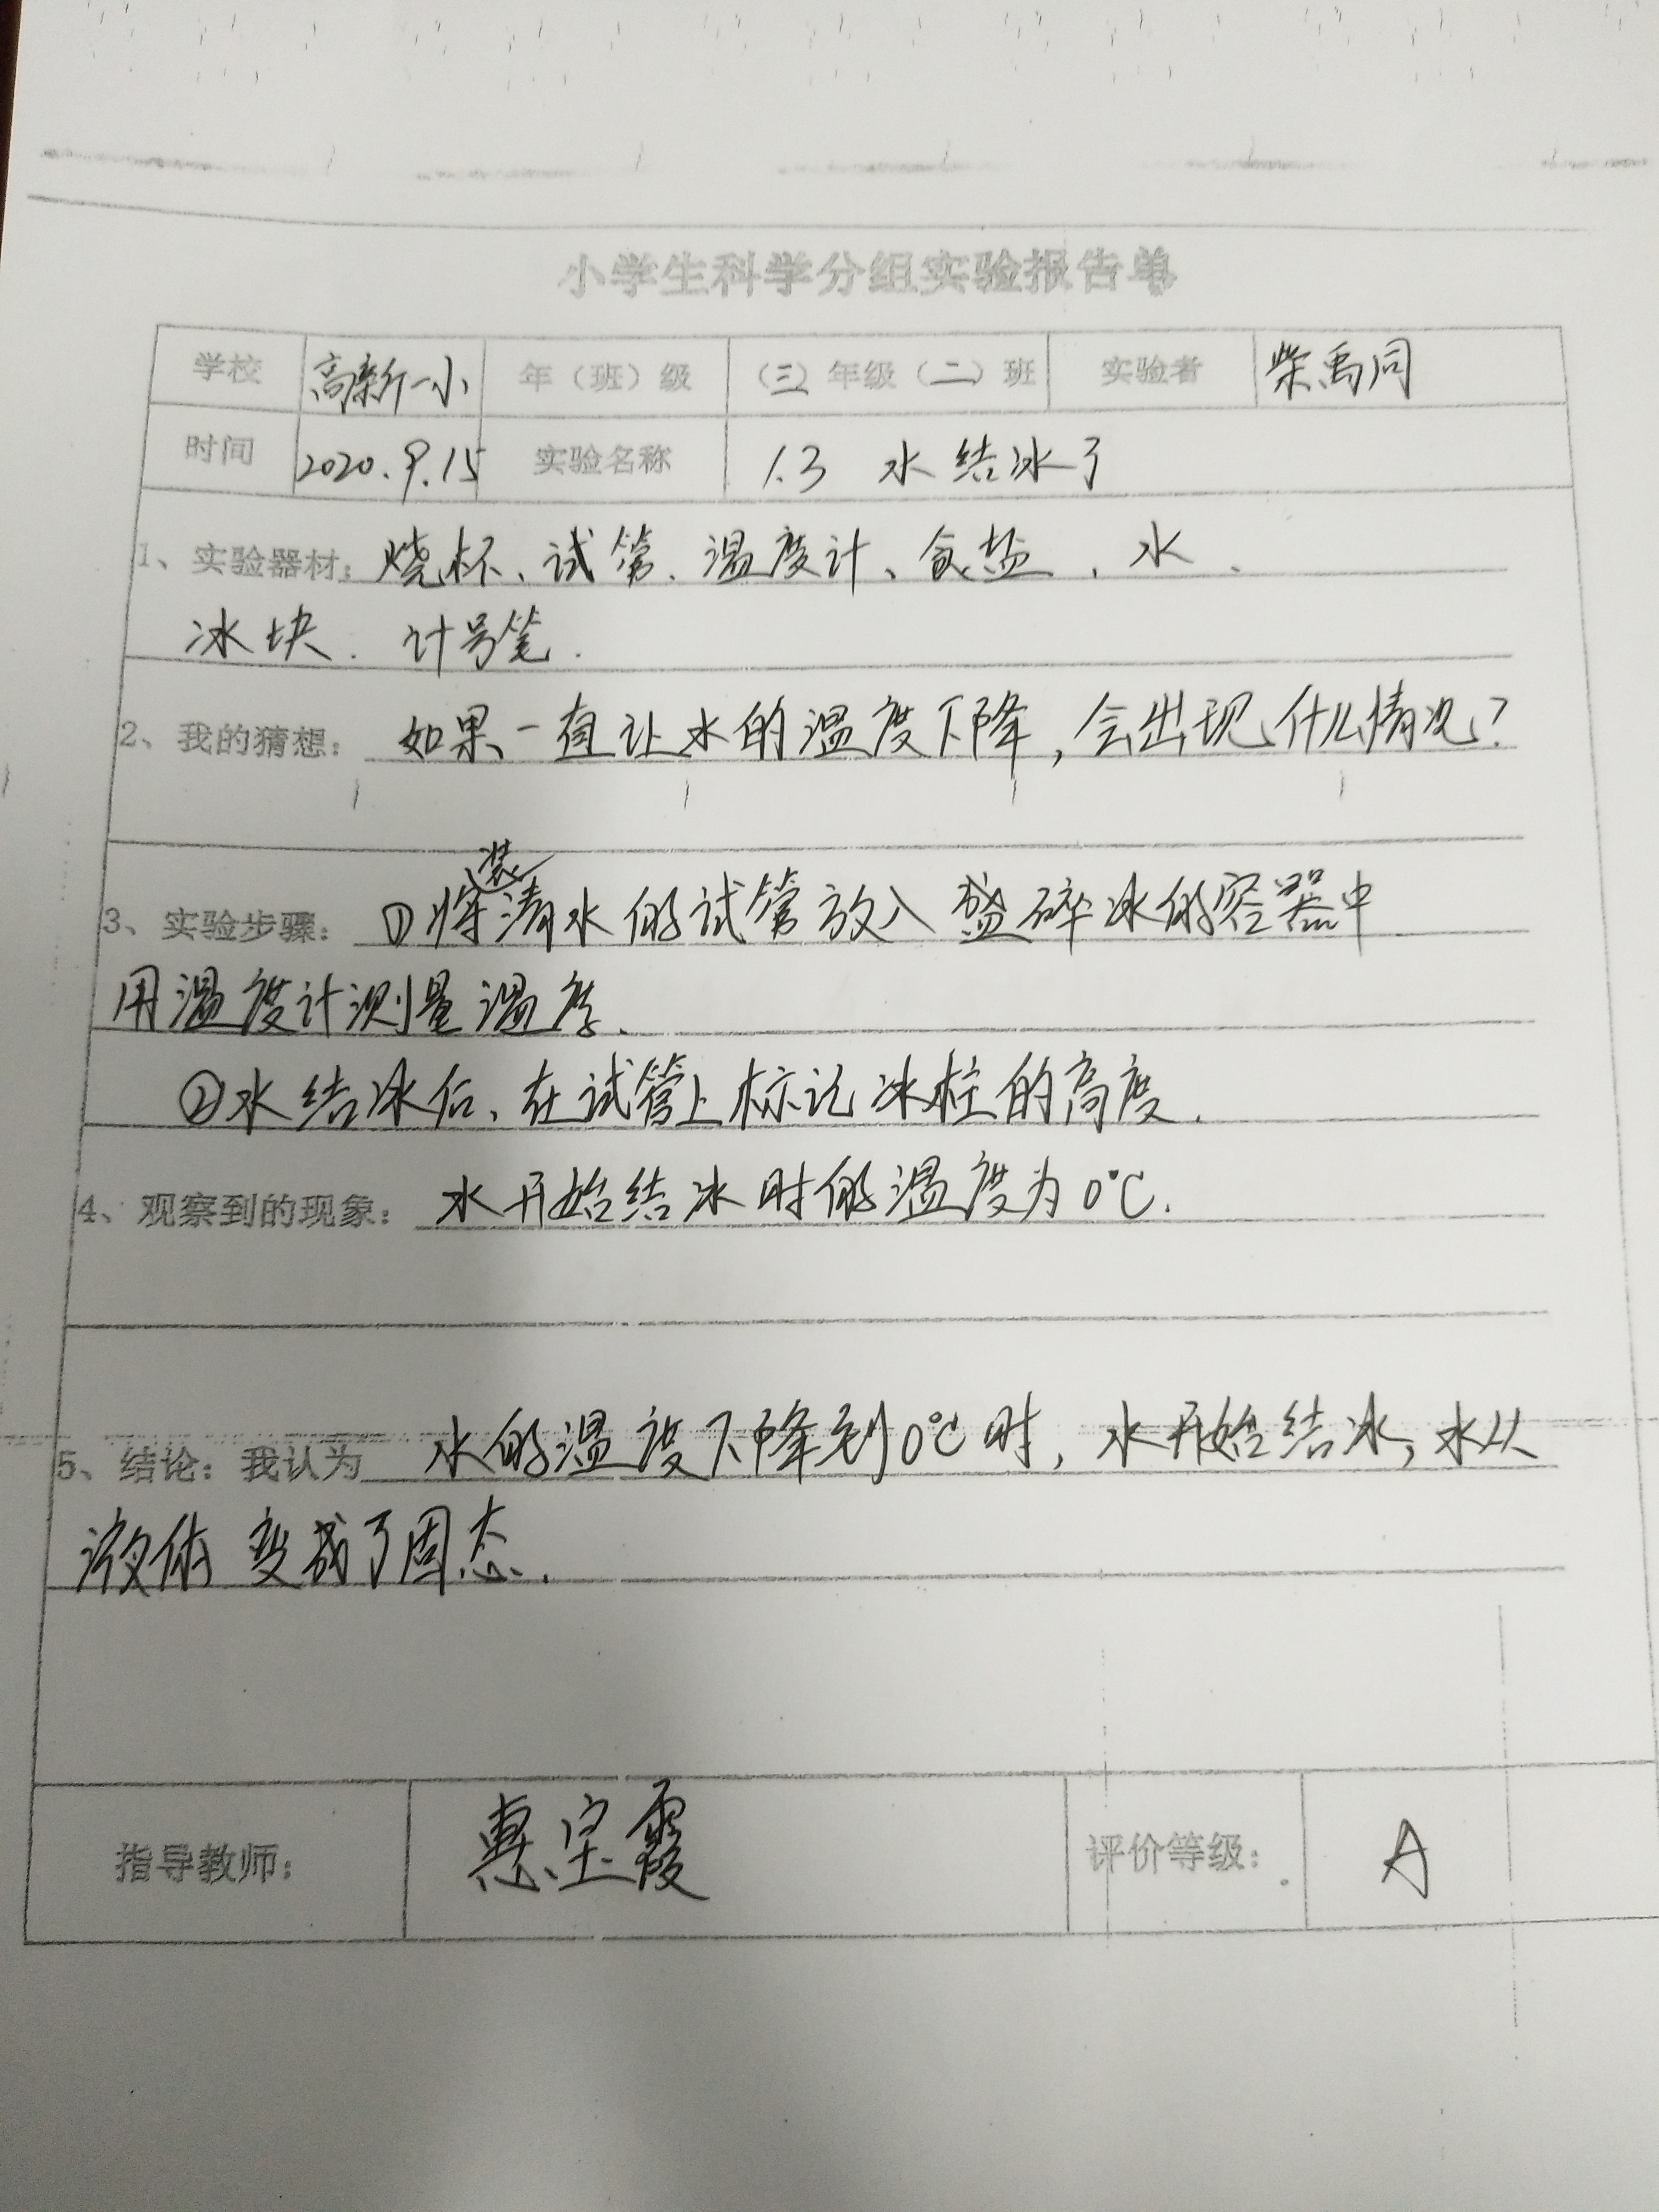 小学生科学分组实验报告单
学校 高新一小 年（班）级 （三）年级（二）班 实验者 柴禹同
时间 2020.9.15 实验名称 1.3 水结冰了
1、实验器材：烧杯、试管、温度计、食盐、水、
冰块、计号笔.
2、我的猜想：如果一直让水的温度下降，会出现什么情况？
3、实验步骤：①将装清水的试管放入盛碎冰的容器中
用温度计测量温度、
②水结冰后、在试管上标记冰柱的高度.
4、观察到的现象：水开始结冰时的温度为0℃.
5、结论：我认为 水的温度下降到0℃时，水开始结冰，水从
液体变成了固态.
指导教师： 惠宝霞 评价等级： A